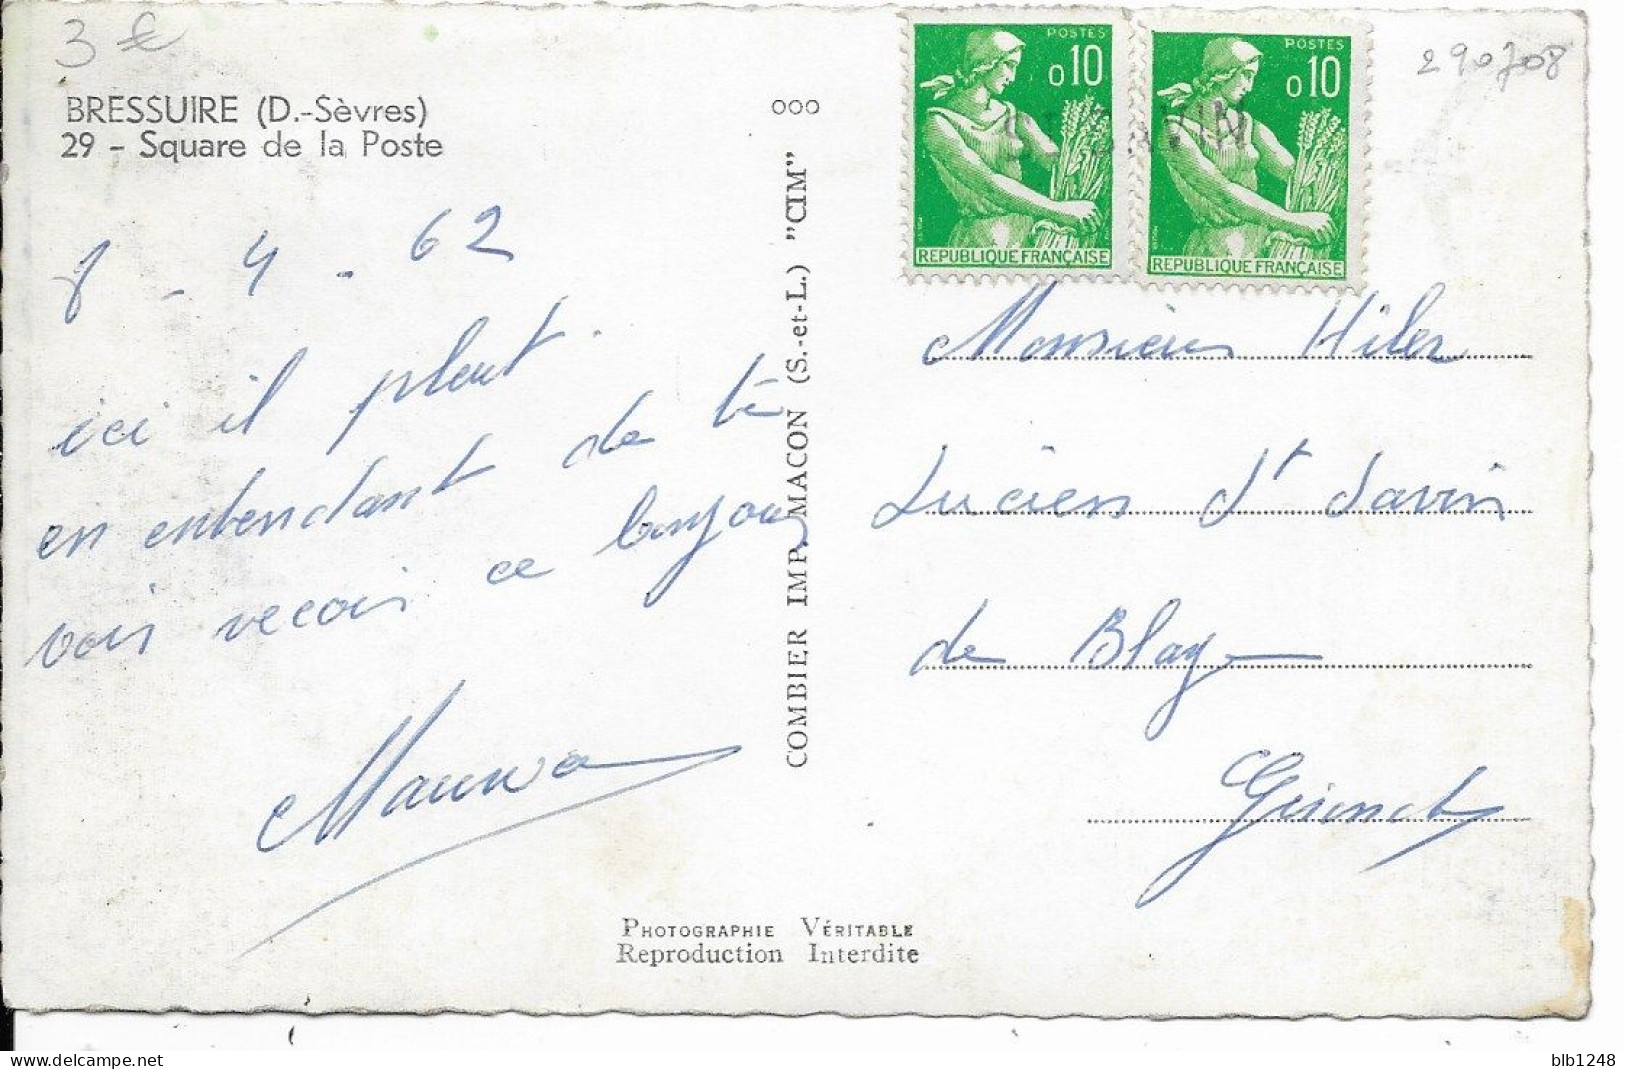 3 €
BRESSUIRE (D.-Sèvres)
29 - Square de la Poste
8 - 4 - 62
ici il pleut.
en entendant de te
vois recois ce bonjour
ooo
COMBIER IMP. MACON (S.-et-L.) "CIM"
POSTES
0,10
REPUBLIQUE FRANÇAISE
POSTES
0,10
REPUBLIQUE FRANÇAISE
ST SAVIN
290708
Monsieur Hiler
Lucien St Savin
de Blaye
Gironde
PHOTOGRAPHIE VÉRITABLE
Reproduction Interdite
blb1248